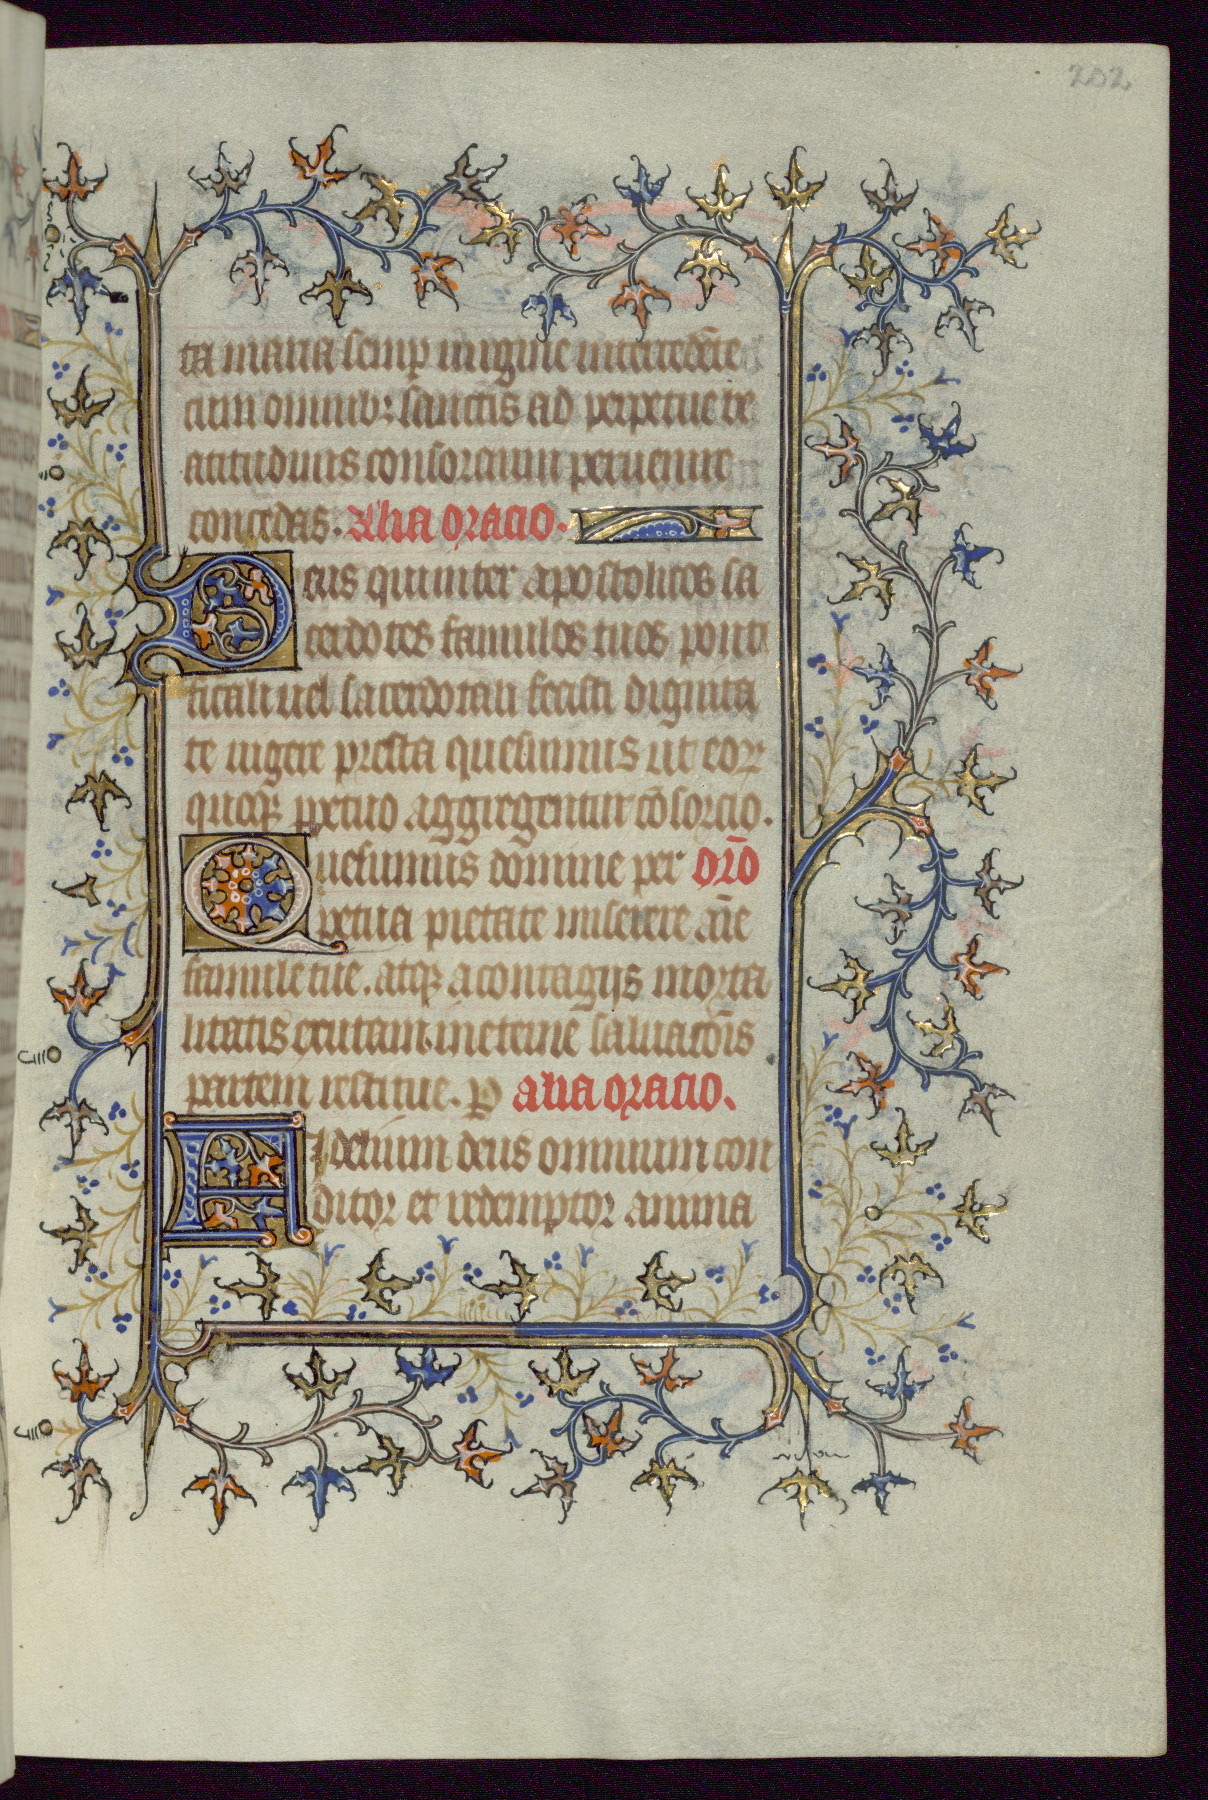 202
ta maria semp uirgine intercedēte
cum omnib: sanctis ad perpetue be
atitudinis consorcium peruenire
concedas. Alia oracio.
Deus qui inter apostolicos sa
cerdotes famulos tuos ponti
ficali uel sacerdotali fecisti dignita
te uigere presta quesumus ut eoꝝ
quoqꝫ ꝑpetuo aggregentur cōsorcio.
Quesumus domine per orō
petua pietate miserere aīe
famule tue. atqꝫ a contagijs morta
litatis exutam. in eterne saluacōis
partem restitue. P alia oracio.
idelium deus omnium con
ditor et redemptor anima